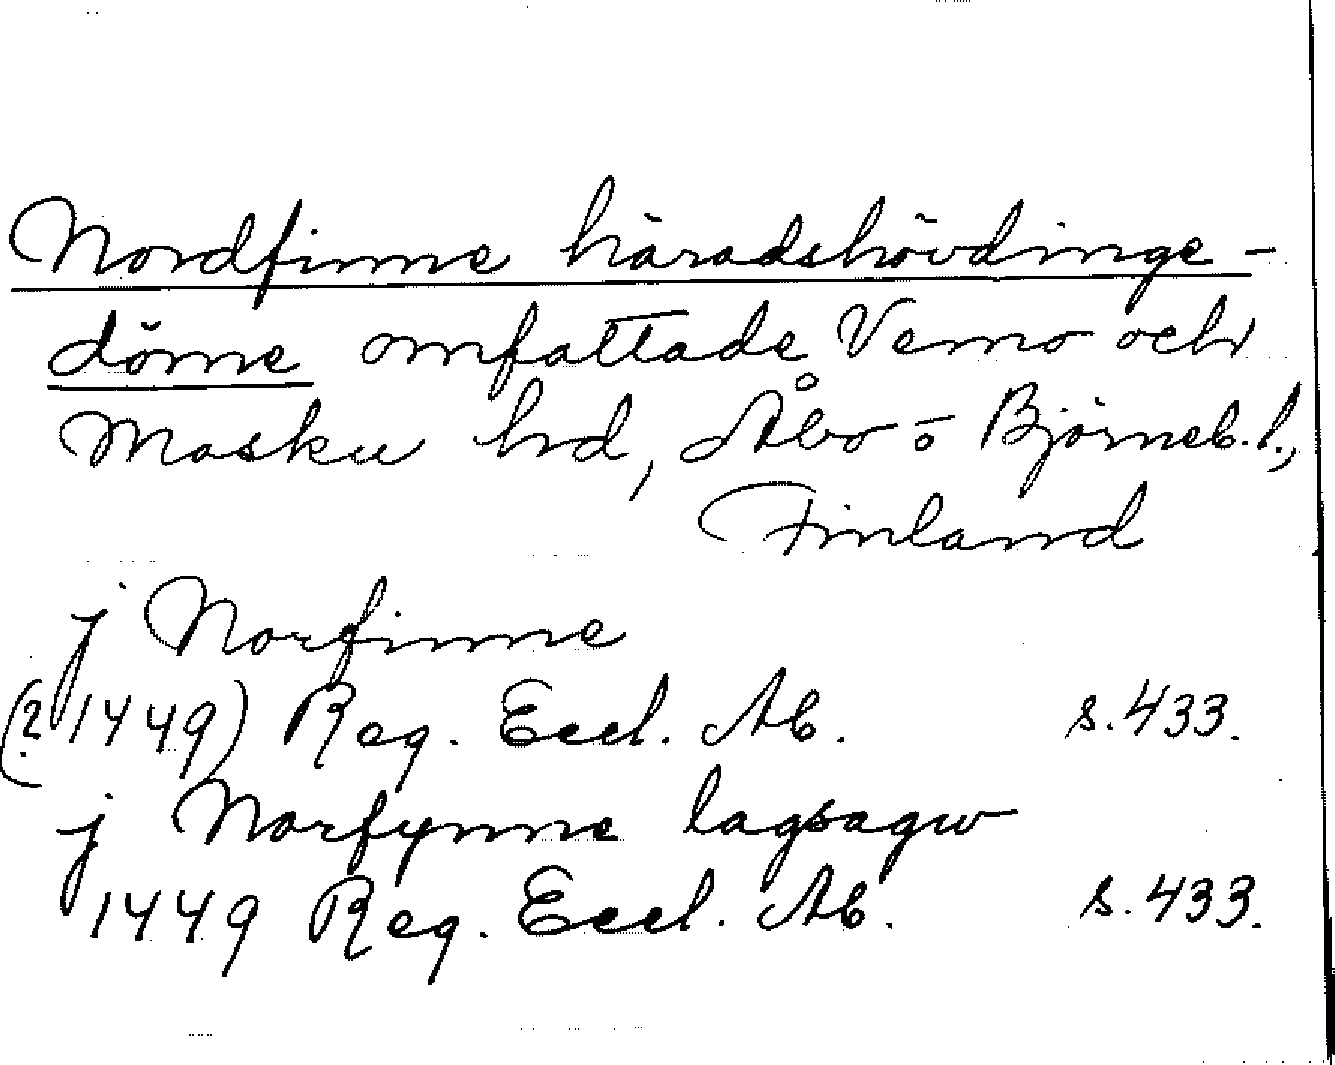 Nordfinne häradshövdinge-
döme omfattade Vemo och
Masku hd, Åbo o Björneb. l.,
Finland
j Norfinne
(? 1449) Reg. Eccl. Ab. s. 433.
j Norfynne lagsagw
1449 Reg. Eccl. Ab. s. 433.